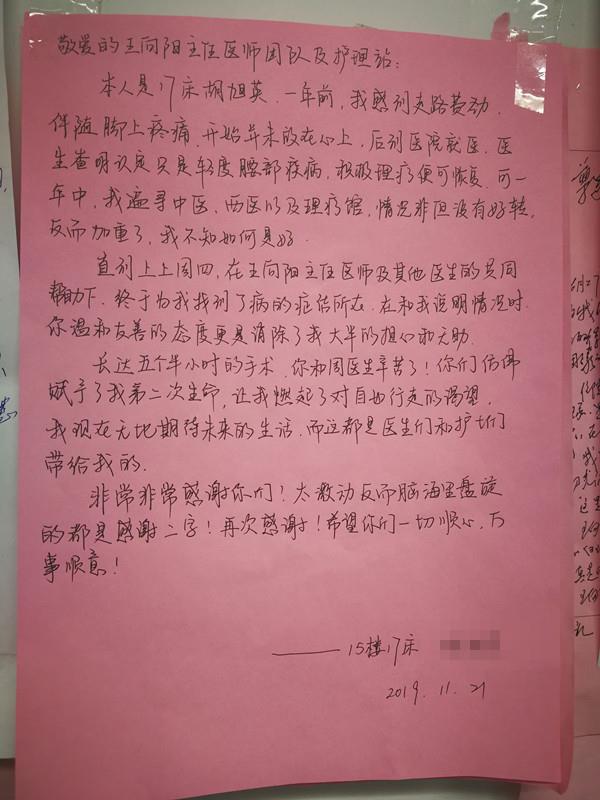 敬爱的王向阳主任医师团队及护理站：
本人是17床胡旭英.一年前,我感到走路费劲,
伴随脚上疼痛.开始并未放在心上,后到医院就医.医
生查明认定只是轻度腰部疾病,积极理疗便可恢复.可一
年中,我遍寻中医、西医以及理疗馆,情况非但没有好转,
反而加重了,我不知如何是好.
直到上上周四,在王向阳主任医师及其他医生的共同
帮助下,终于为我找到了病的症结所在.在和我说明情况时
你温和友善的态度更是消除了我大半的担心和无助.
长达五个半小时的手术,你和周医生辛苦了!你们仿佛
赋予了我第二次生命,让我燃起了对自由行走的渴望.
我现在无比期待未来的生活.而这都是医生们和护士们
带给我的.
非常非常感谢你们!太激动反而脑海里盘旋
的都是感谢二字!再次感谢!希望你们一切顺心,万
事顺意!
——15楼17床
2019.11.21